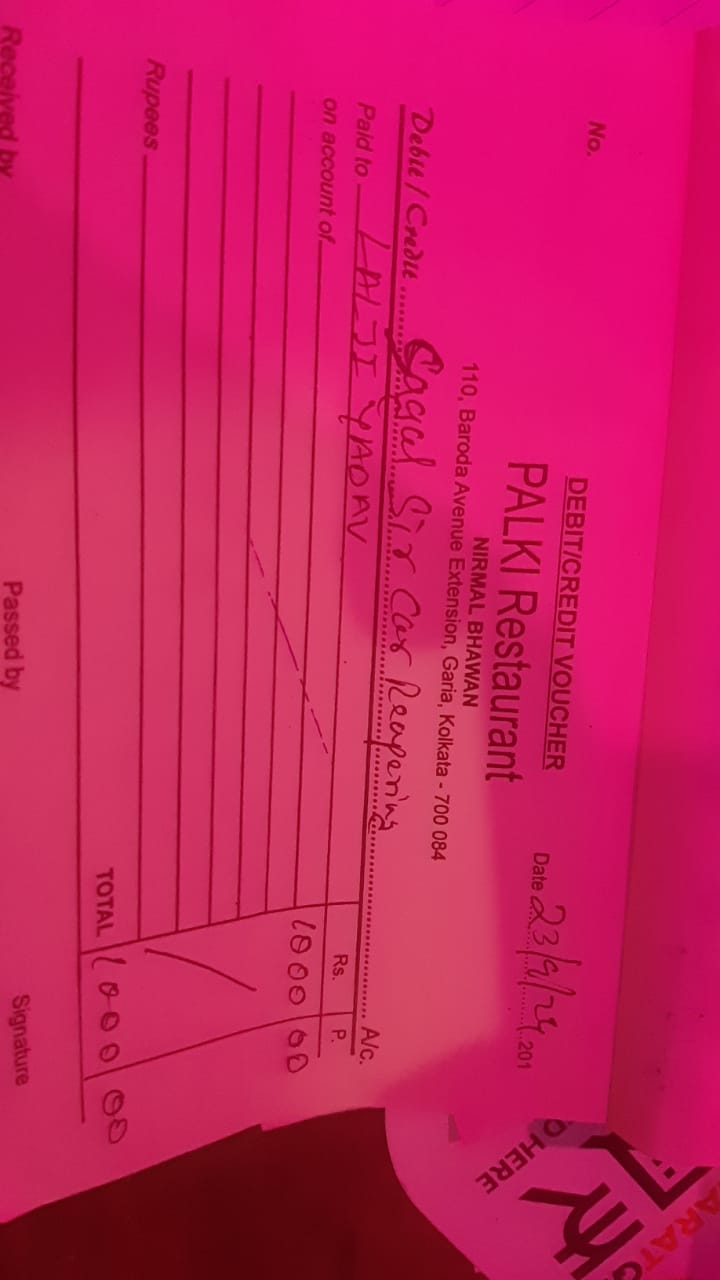 No.
DEBIT/CREDIT VOUCHER
PALKI Restaurant
NIRMAL BHAWAN
110, Baroda Avenue Extension, Garia, Kolkata - 700 084
Date 23/9/24 201
Debit / Credit Sir Car Reapering A/c.
Paid to LALJI YADAV
on account of
Rs. P.
1000 00
Rupees
TOTAL 1000 00
Received by Passed by Signature
HERE